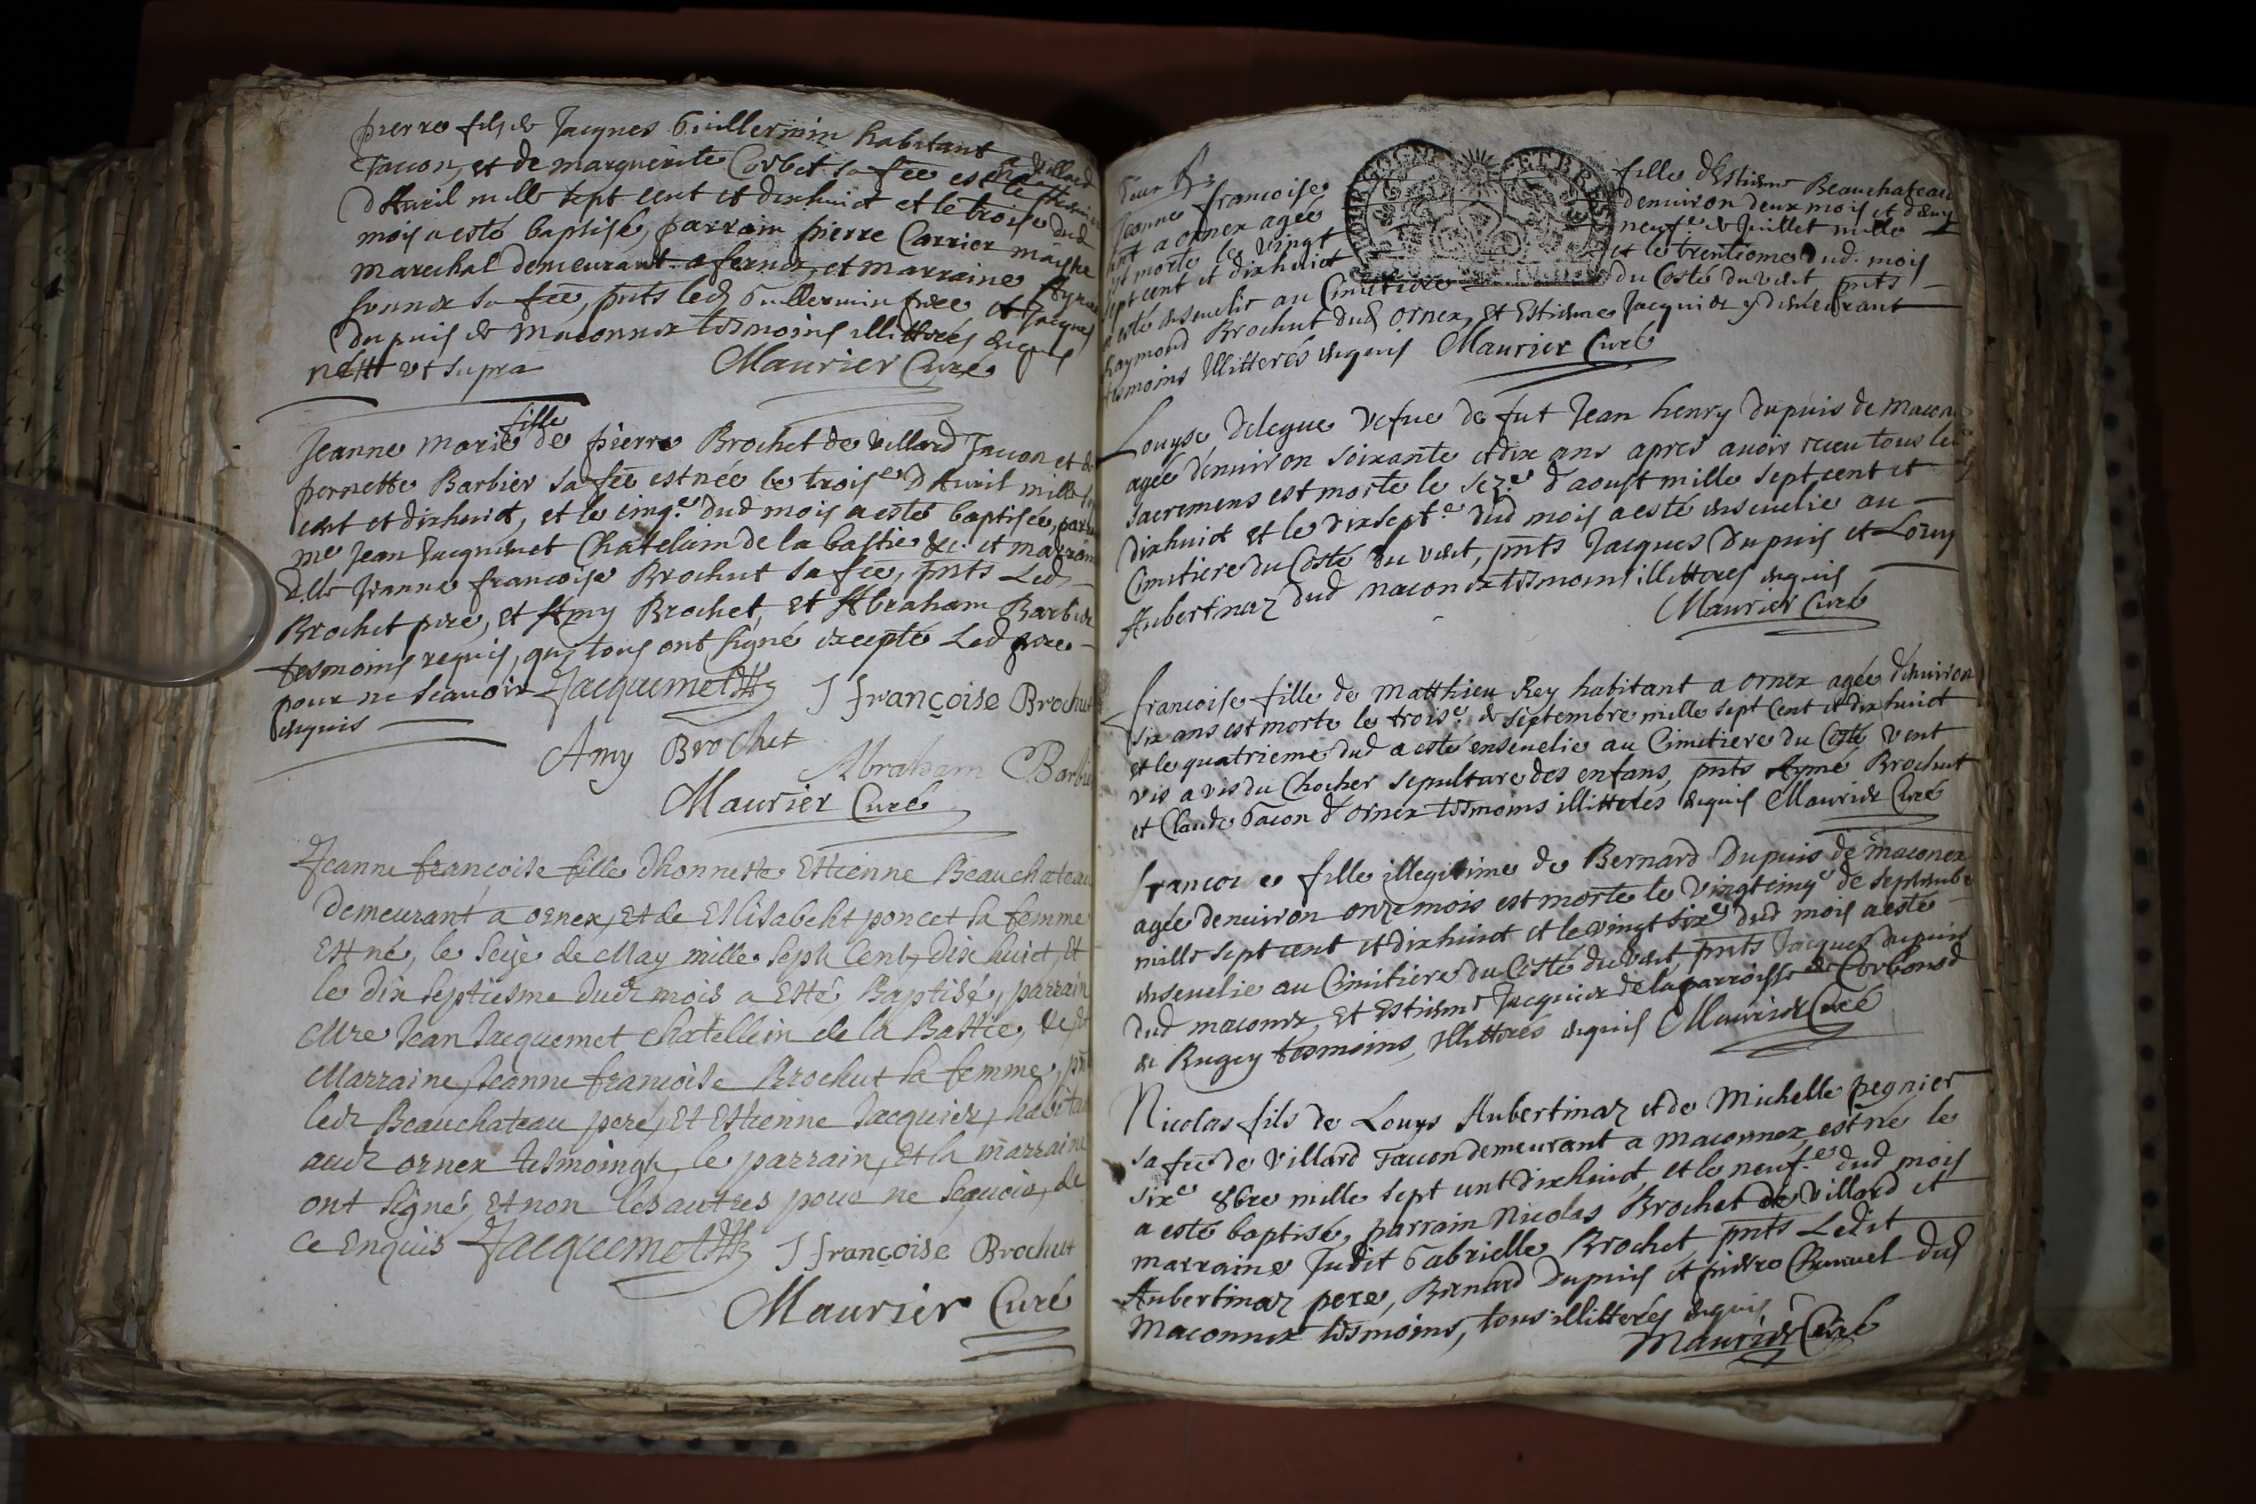 pierre fils de Jacques Guillermin habitant a Villard
Tacon, et de marguerite Corbet sa fee est né le
d'Avril mille sept cent et dixhuict et le troise dud
mois a esté baptisé, parrain pierre Carrier maistre
marechal demeurant a fernex, et marraine
sa fee, pnts led Guillermin pere et Jacques
Dupuis de Maconnex tesmoins illitterés enquis
ut supra
Maurier Curé
fille
Jeanne Marie de pierre Brochet de Villard Tacon et de
pernette Barbier sa fee est née le troise d'Avril mille sept
cent et dixhuict, et le cinq.e dud mois a esté baptisée, parrain
me Jean Jacquemet Chatelain de la bastie &c. et marraine
Jeanne francoise Brochut sa fee, pnts Led
Brochet pere, et Amy Brochet, et Abraham Barbier
tesmoins requis, qui tous ont signé excepté Led pere
pour ne scavoir
enquis
Jacquemet
J françoise Brochut
Amy Brochet
Abraham Barbier
Maurier Curé
Jeanne françoise fille dhonneste Estienne Beauchateau
demeurant a ornex, et de Elisabeht poncet sa femme
est né, le seize de May mille sept Cent, dix huict, et
le dix septiesme dud mois a esté Baptisé, parrain
Mre Jean Jacquemet chatellein de la Bastie, &c, et
Marraine, Jeanne francoise Brochut sa femme, pnt
led Beauchateau pere, et Estienne Jacquier, habitan
aud ornex tesmoingts, le parrain, et la marraine
ont signé, et non les autres pour ne scavoir, de
ce enquis
Jacquemet
J françoise Brochut
Maurier Curé
Jeanne francoise fille d'Estiene Beauchateau
a ornex agée denviron deux mois et demy
est morte le vingt neuf.e de Juillet mille
sept cent et dixhuict et le trentieme dud. mois
a esté ensevelie au Cimetiere du Costé du vent pnts
Raymond Brochut dud ornex, et Estiene Jacquier y demeurant
tesmoins illitterés enquis Maurier Curé
Louyse Delegue vefue de fut Jean henry Dupuis de macon
agée denviron soixante et dix ans apres avoir receu tous les
sacremens est morte le sez.e d'aoust mille sept cent et
dixhuict et le dixsept.e dud mois a esté ensevelie au
Cimitiere du Costé du vent, pnts Jacques Dupuis et Louy
Aubertinaz dud maconex tesmoins illitterés enquis
Maurier Curé
francoise fille de Matthieu Rey habitant a ornex agée denviron
six ans est morte le trois.e de septembre mille sept cent et dixhuict
et le quatrieme dud a esté ensevelie au Cimitiere du Costé vent
vis a vis du Chocher sepulture des enfans, pnts Aymé Brochut
et Claude Gacon d'ornex tesmoins illitterés enquis Maurier Curé
francoise fille illegitime de Bernard Dupuis de maconex
agée denviron onze mois est morte le vingtcinq.e de septembre
mille sept cent et dixhuict et le vingt six.e dud mois a esté
ensevelie au Cimitiere du Costé du vent pnts Jacques Dupuis
dud maconex, et Estiene Jacquier de la parroisse de Corbonod
en Bugey tesmoins, illitterés enquis Maurier Curé
Nicolas fils de Louys Aubertinaz et de Michelle pegnier
sa fee de Villard Tacon demeurant a maconnex, est né le
six.e 8bre mille sept cent dixhuict, et le neuf.e dud mois
a esté baptisé, parrain Nicolas Brochet de Villard et
marraine Judit Gabrielle Brochet pnts Ledit
Aubertinaz pere, Bernard Dupuis et pierre dud
Maconnex tesmoins, tous illitterés enquis
Maurier Curé